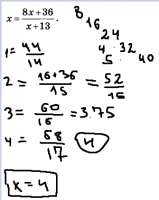 x = \frac{8x+36}{x+13}.
8
16
24
4 · 32
5 · 40
1 = \frac{44}{14}
2 = \frac{16+36}{15} = \frac{52}{15}
3 = \frac{60}{16} = 3.75
4 = \frac{68}{17} 4
x = 4